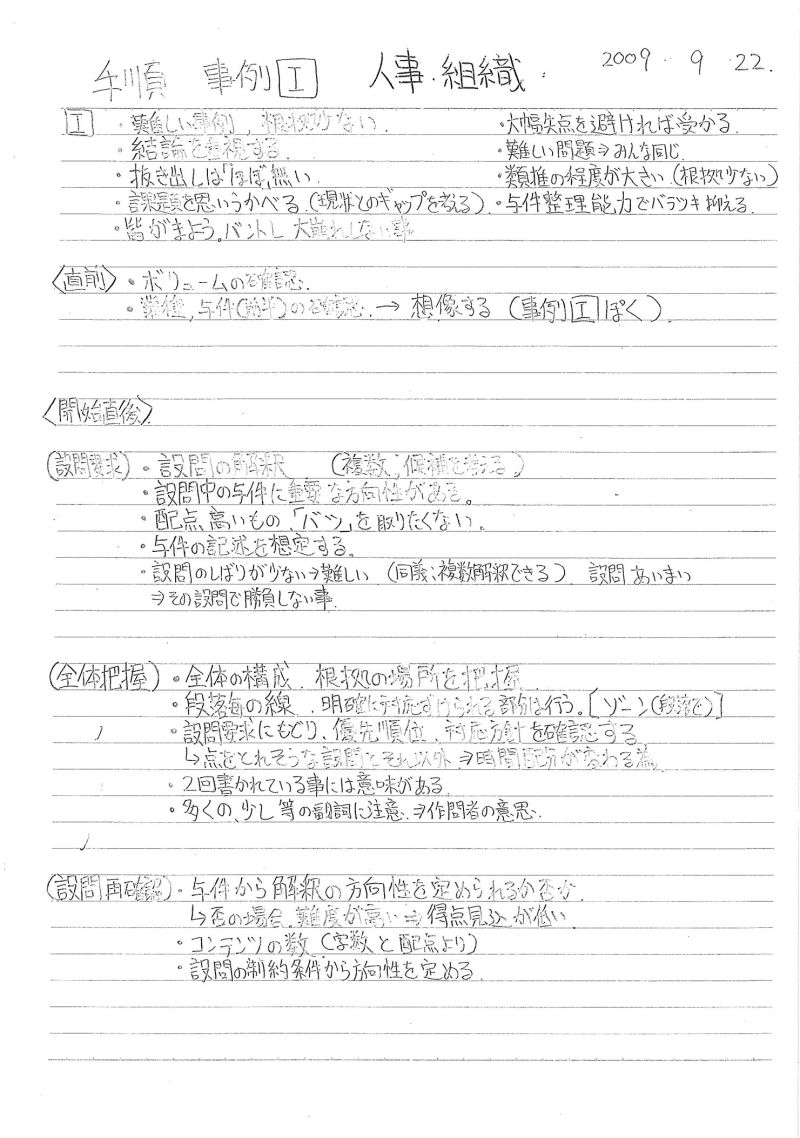 手順 事例Ⅰ 人事・組織. 2009. 9. 22.
Ⅰ ・難しい事例, 根拠少ない. ・大幅失点を避ければ受かる.
・結論を重視する. ・難しい問題⇒みんな同じ.
・抜き出しは「ほぼ」無い. ・類推の程度が大きい(根拠少ない)
・課題を思いうかべる.(現状とのギャップを考える) ・与件整理能力でバラツキ抑える.
・皆がまよう。バントし 大崩れしない事
〈直前〉・ボリュームの確認.
・業種, 与件(前半)の確認. → 想像する (事例Ⅰぽく).
〈開始直後〉
(設問要求)・設問の解釈 (複数, 候補を考える)
・設問中の与件に重要な方向性がある。
・配点、高いもの、「バツ」を取りたくない。
・与件の記述を想定する。
・設問のしばりが少ない⇒難しい (同義:複数解釈できる) 設問 あいまい
⇒その設問で勝負しない事.
(全体把握)・全体の構成. 根拠の場所を把握.
・段落毎の線. 明確に対応づけられる部分は行う。[ゾーン(段落で)]
・設問要求にもどり、優先順位、対応方針を確認する
↳点をとれそうな設問とそれ以外. ⇒時間配分が変わる為.
・2回書かれている事には意味がある.
・多くの、少し 等の副詞に注意. ⇒作問者の意思.
(設問再確認)・与件から解釈の方向性を定められるか否か.
↳否の場合, 難度が高い⇒得点見込が低い
・コンテンツの数 (字数と配点より)
・設問の制約条件から方向性を定める.